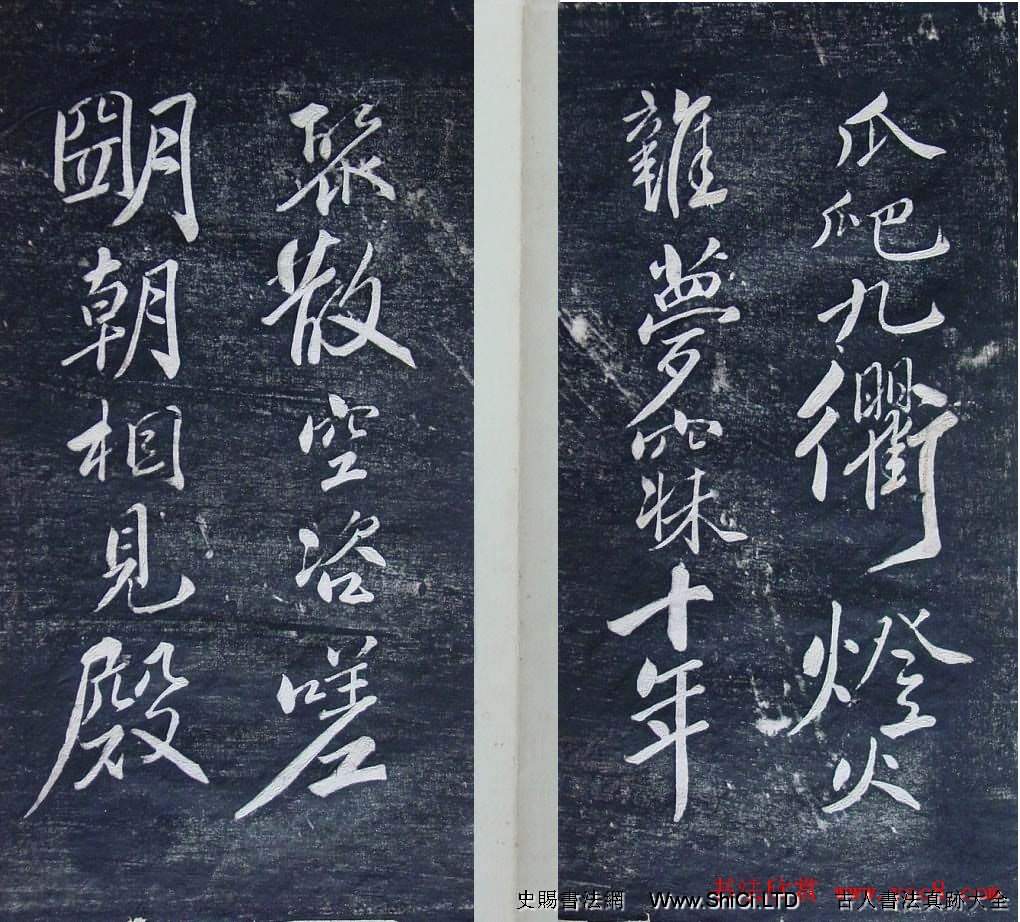 瓜爬九衢燈火
雜夢寐十年
聚散空咨嗟
明朝相見殿
史賜書法網 Www.ShiCi.LTD 古人書法真跡大全